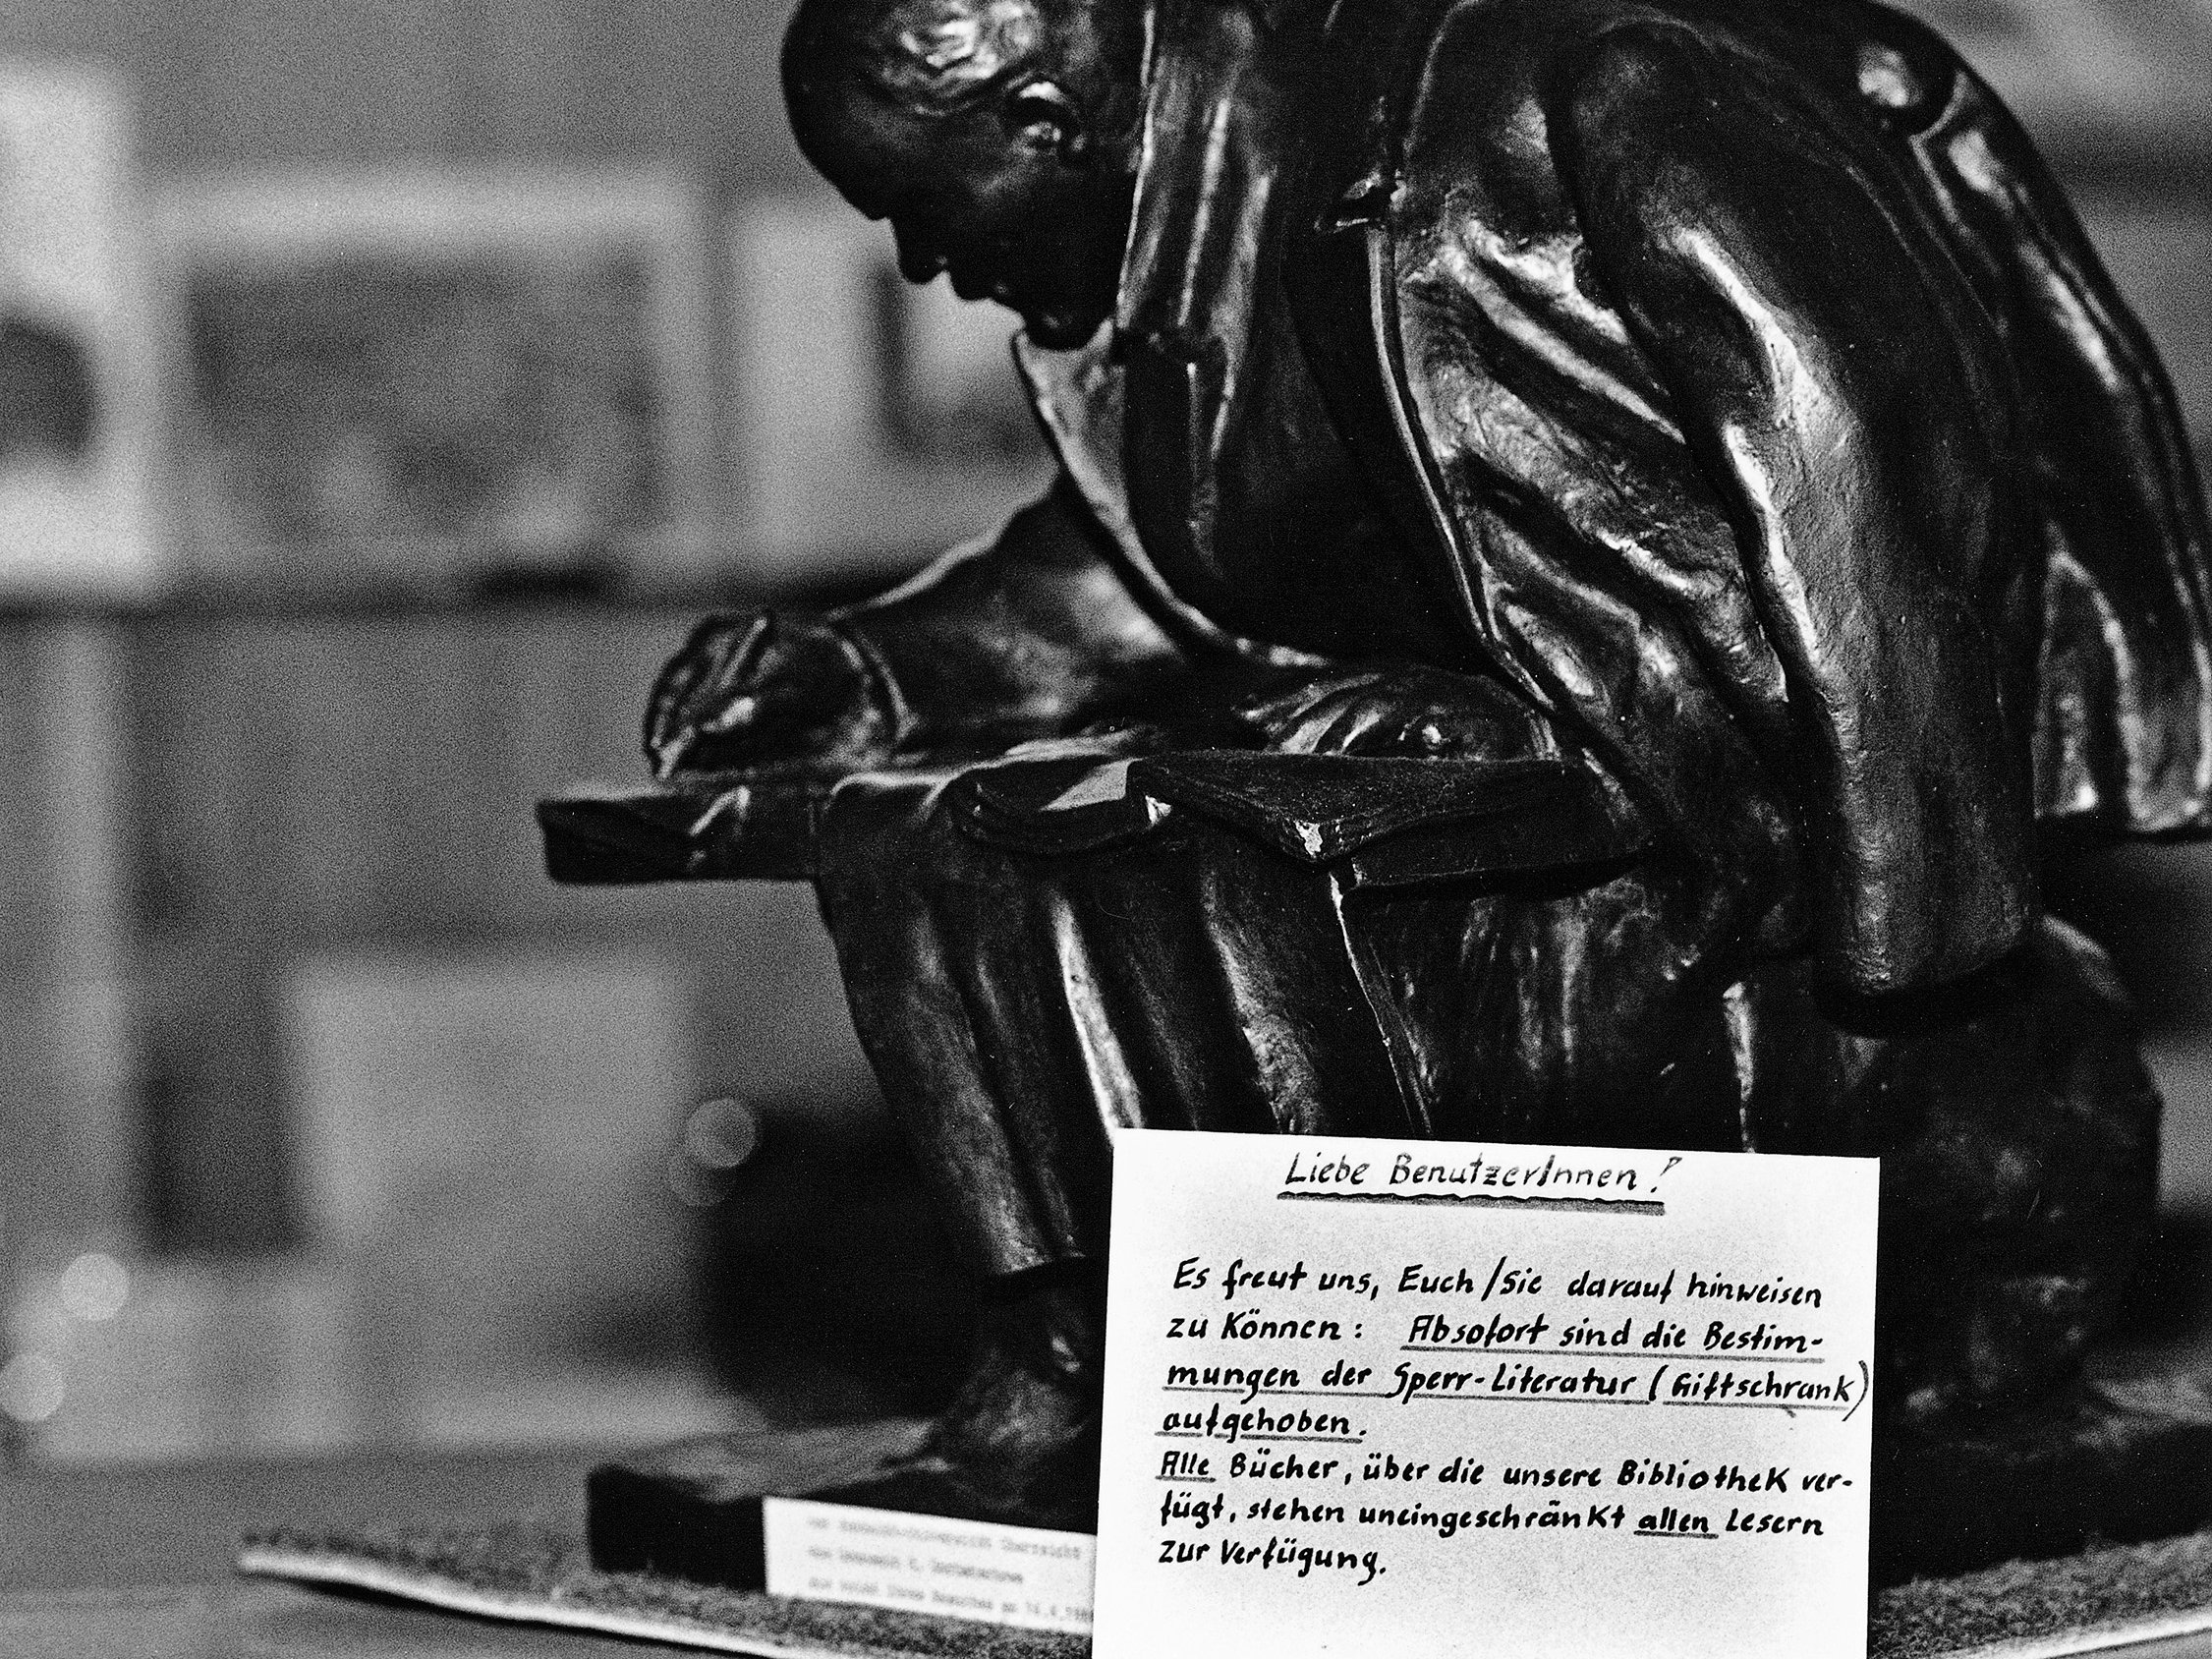 Liebe BenutzerInnen!
Es freut uns, Euch/Sie darauf hinweisen
zu Können: Absofort sind die Bestim-
mungen der Sperr-Literatur (Giftschrank)
aufgehoben.
Alle Bücher, über die unsere Bibliothek ver-
fügt, stehen uneingeschränkt allen Lesern
zur Verfügung.